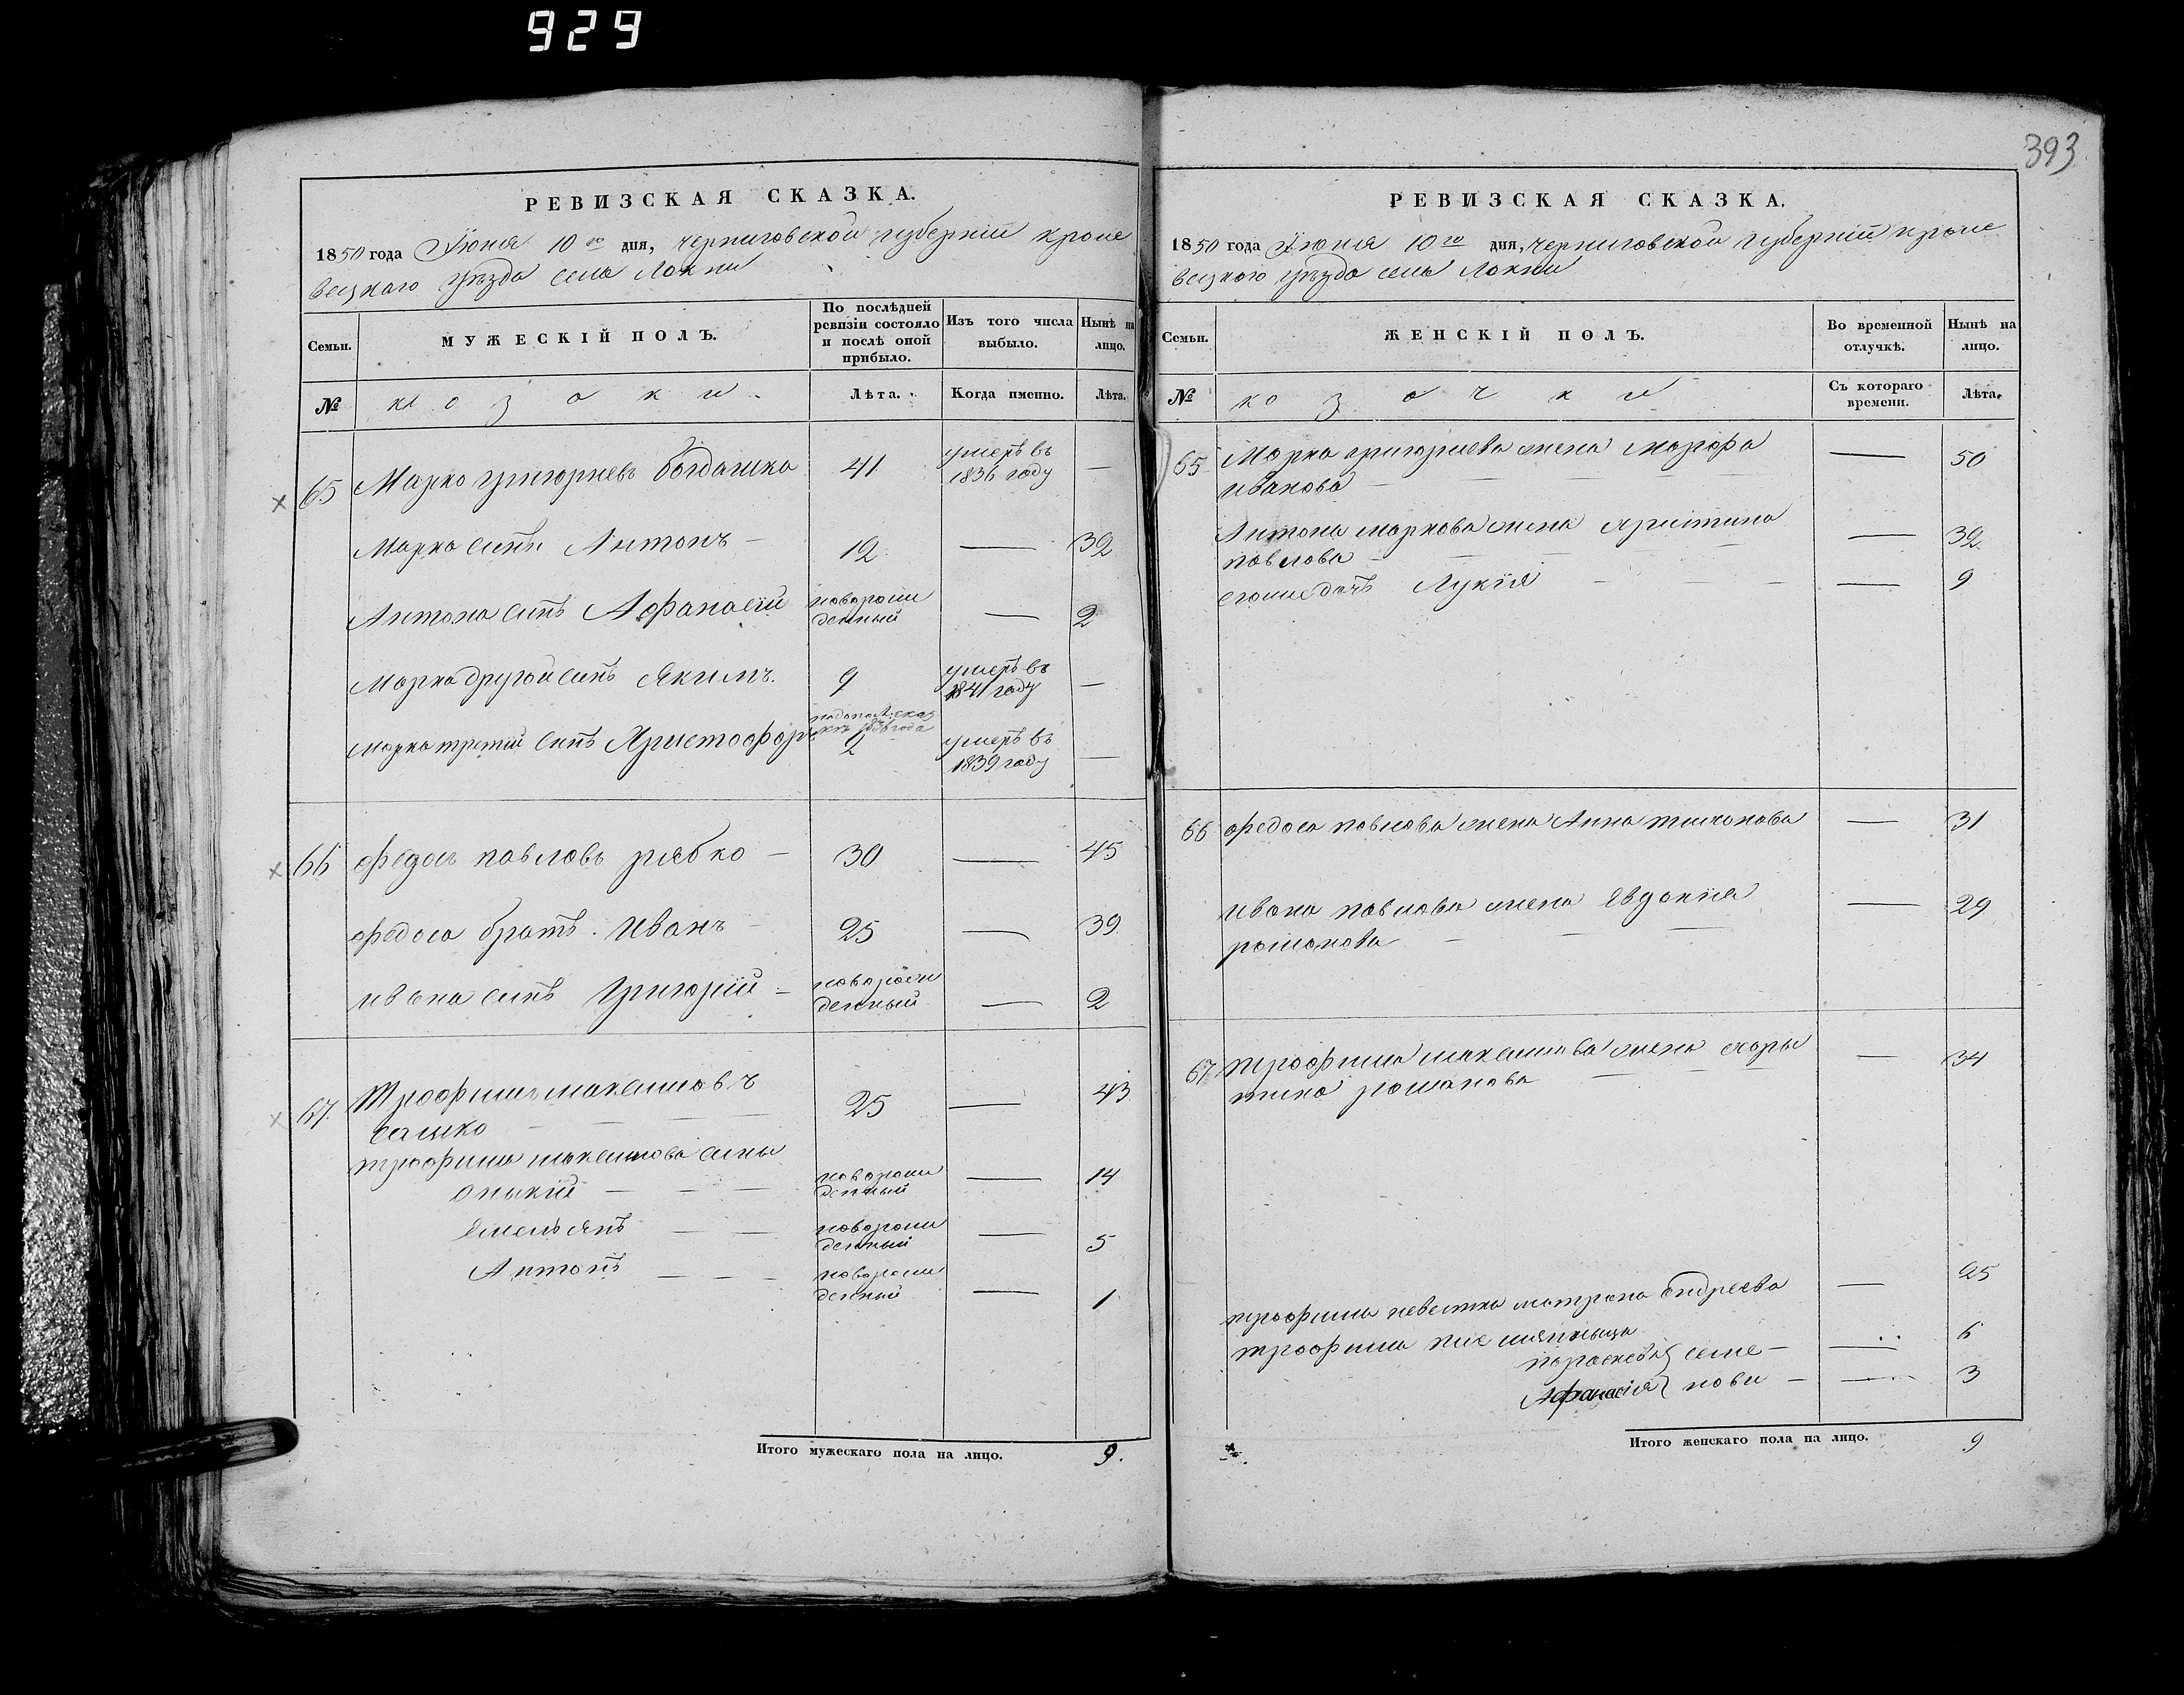 929
393
РЕВИЗСКАЯ СКАЗКА.
1850 года Іюня 10го дня, черниговской губерніи кроле
вецкаго уѣзда села Локни
Семьи. МУЖЕСКІЙ ПОЛЪ. По послѣдней ревизіи состояло и послѣ оной прибыло. Изъ того числа выбыло. Нынѣ на лицо.
№ козаки Лѣта. Когда именно. Лѣта.
65 Марко григориевъ богдашко 41 умеръ въ 1836 году —
Марка синъ Антонъ — 12 — 32
Антона синъ Афанасій новорожденный — 2
Марка другой синъ Якимъ. 9 умеръ въ 1841 году —
Марка третій синъ Христофоръ 2 умеръ въ 1839 году —
66 федосъ павловъ рябко — 30 — 45
федоса братъ Иванъ — 25 — 39
ивана синъ Григорій — новорожденный — 2
67 Трофимъ максимовъ 25 — 43
сашко
трофима максимова сины
новорожденный — 14
Емельянъ новорожденный — 5
Антонъ новорожденный — 1
Итого мужескаго пола на лицо. 9.
РЕВИЗСКАЯ СКАЗКА.
1850 года Іюня 10го дня, черниговской губерніи кроле
вецкаго уѣзда села Локни
Семьи. ЖЕНСКІЙ ПОЛЪ. Во временной отлучкѣ. Нынѣ на лицо.
№ козачки Съ котораго времени. Лѣта.
65 Марка григориева жена Марфа — 50
иванова
Антона маркова жена христина — 32
павлова
егоже дочь Лукія — 9
66 федоса павлова жена Анна тимонова — 31
ивана павлова жена Евдокія — 29
романова
67 трофима максимова жена хары — 34
тина романова
трофима невестка матрона андреева — 25
трофима племянныци
параскева } семе — — 6
Афанасія } нови — — 3
Итого женскаго пола на лицо. 9